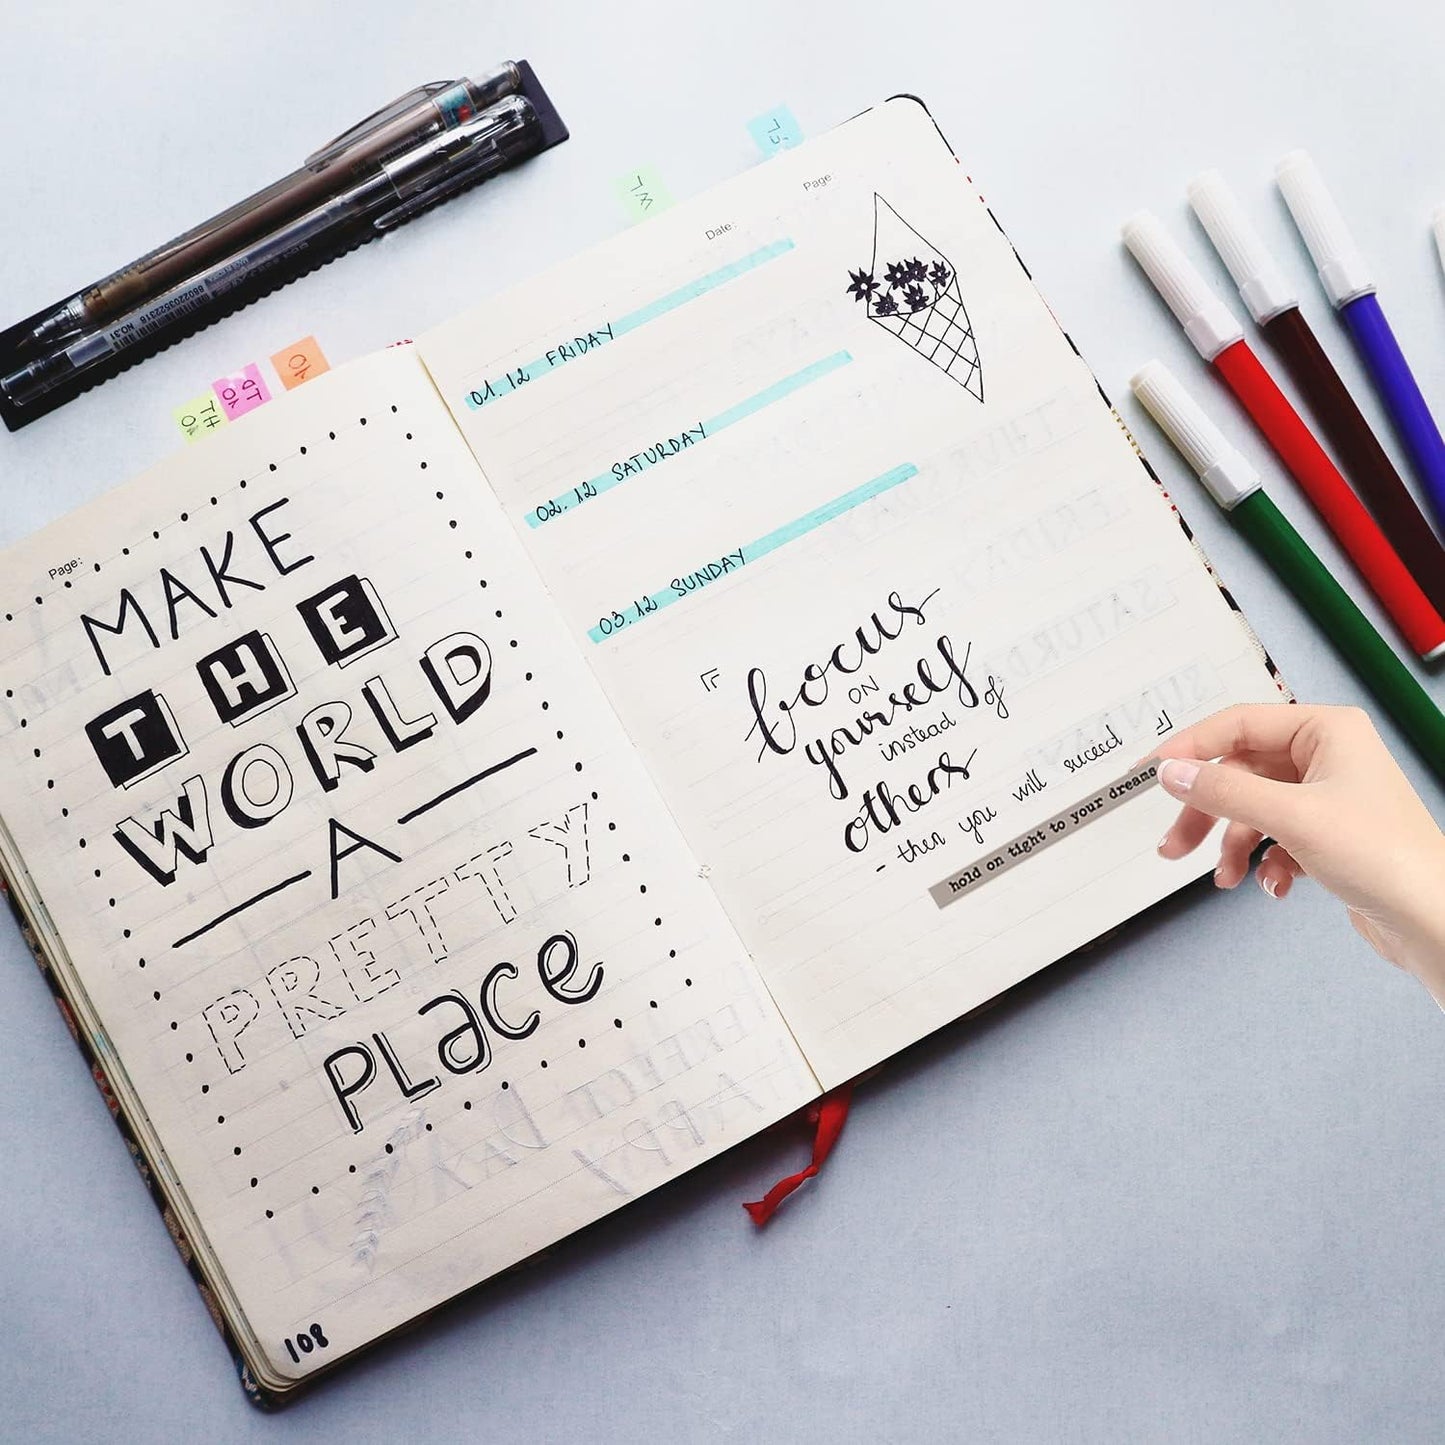 Page:
MAKE
THE
WORLD
A
PRETTY
PLace
108
Date:
Page:
01. 12 FRiDAY
02. 12 SATURDAY
03. 12 SUNDAY
focus
ON
yourself
instead of
others
- then you will succeed
hold on tight to your dreams
NO.31
8802203522318
MADE IN KOREA